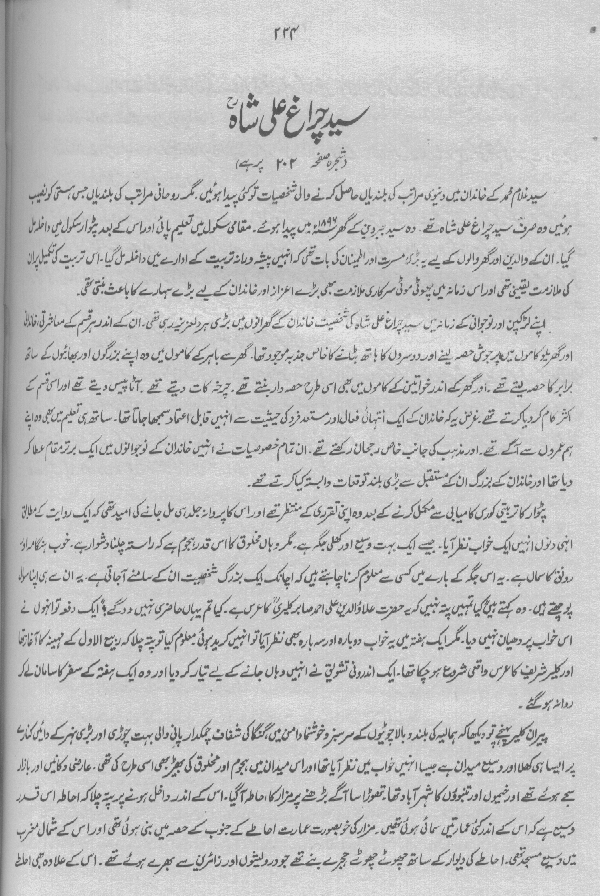 ۲۲۴
سید چراغ علی شاہؒ
(شجرہ صفحہ ۲۰۲ پر ہے)
سید غلام محمد کے خاندان میں دنیوی مراتب کی بلندیاں حاصل کرنے والی شخصیات تو کئی پیدا ہوئیں۔ مگر روحانی مراتب کی بلندیاں جس ہستی کو نصیب
ہوئیں وہ صرف سید چراغ علی شاہ تھے۔ وہ سید کے گھر میں پیدا ہوئے۔ مقامی سکول میں تعلیم پائی اور اس کے بعد پٹوار سکول میں داخلہ مل
گیا۔ ان کے والدین اور گھر والوں کے لیے یہ بڑی مسرت اور اطمینان کی بات تھی کہ انہیں پیشہ ورانہ تربیت کے ادارے میں داخلہ مل گیا۔ اس تربیت کی تکمیل پر ان
کی ملازمت یقینی تھی اور اس زمانہ میں چھوٹی موٹی سرکاری ملازمت بھی بڑے اعزاز اور خاندان کے لیے بڑے سہارے کا باعث بنتی تھی۔
اپنے لڑکپن اور نوجوانی کے زمانہ میں سید چراغ علی شاہ کی شخصیت خاندان کے گھرانوں میں بڑی ہردلعزیز رہی تھی۔ ان کے اندر ہر قسم کے معاشرتی، خاندانی
اور گھریلو کاموں میں پرجوش حصہ لینے اور دوسروں کا ہاتھ بٹانے کا خاص جذبہ موجود تھا۔ گھر سے باہر کے کاموں میں وہ اپنے بزرگوں اور بھائیوں کے ساتھ
برابر کا حصہ لیتے تھے۔ اور گھر کے اندر خواتین کے کاموں میں بھی اسی طرح حصہ دار بنتے تھے۔ چرخہ کات دیتے تھے۔ آٹا پیس دیتے تھے اور اسی قسم کے
اکثر کام کر دیا کرتے تھے۔ غرض یہ کہ خاندان کے ایک انتہائی فعال اور مستعد فرد کی حیثیت سے انہیں قابل اعتماد سمجھا جاتا تھا۔ ساتھ ہی تعلیم میں بھی وہ اپنے
ہم عمروں سے آگے تھے۔ اور مذہب کی جانب خاص رجحان رکھتے تھے۔ ان تمام خصوصیات نے انہیں خاندان کے نوجوانوں میں ایک برتر مقام عطا کر
دیا تھا اور خاندان کے بزرگ ان کے مستقبل سے بڑی بلند توقعات وابستہ کیا کرتے تھے۔
پٹوار کا تربیتی کورس کامیابی سے مکمل کرنے کے بعد وہ اپنی تقرری کے منتظر تھے اور اس کا پروانہ جلد ہی مل جانے کی امید تھی کہ ایک روایت کے مطابق
انہی دنوں انہیں ایک خواب نظر آیا۔ جیسے ایک بہت وسیع اور کھلی جگہ ہے۔ مگر وہاں مخلوق کا اس قدر ہجوم ہے کہ راستہ چلنا دشوار ہے۔ خوب ہنگامہ اور
رونق کا سماں ہے۔ یہ اس جگہ کے بارے میں کسی سے معلوم کرنا چاہتے ہیں کہ اچانک ایک بزرگ شخصیت ان کے سامنے آ جاتی ہے۔ یہ ان سے ہی اپنا سوال
پوچھتے ہیں۔ وہ کہتے ہیں کیا تمہیں پتہ نہیں کہ یہ حضرت علاؤالدین علی احمد صابر کلیریؒ کا عرس ہے۔ کیا تم یہاں حاضری نہیں دو گے؟ ایک دفعہ تو انہوں نے
اس خواب پر دھیان نہیں دیا۔ مگر ایک ہفتہ میں یہ خواب دوبارہ اور سہ بارہ بھی نظر آیا تو انہیں کرید ہوئی معلوم کیا تو پتہ چلا کہ ربیع الاول کے مہینہ کا آغاز تھا
اور کلیر شریف کا عرس واقعی شروع ہو چکا تھا۔ ایک اندرونی تشویق نے انہیں وہاں جانے کے لیے تیار کر دیا اور وہ ایک ہفتہ کے سفر کا سامان لے کر
روانہ ہو گئے۔
پیران کلیر پہنچے تو دیکھا کہ ہمالیہ کی بلند و بالا چوٹیوں کے سرسبز و خوشنما دامن میں گنگا کی شفاف چمکدار پانی والی بہت چوڑی اور بڑی نہر کے دائیں کنارے
پر ایسا ہی کھلا اور وسیع میدان ہے جیسا انہیں خواب میں نظر آیا تھا اور اس میدان میں ہجوم اور مخلوق کی بھیڑ بھی اسی طرح کی تھی۔ عارضی دکانیں اور بازار
سجے ہوئے تھے اور خیموں اور تنبوؤں کا شہر آباد تھا۔ تھوڑا سا آگے بڑھنے پر مزار کا احاطہ آ گیا۔ اس کے اندر داخل ہونے پر پتہ چلا کہ احاطہ اس قدر
وسیع ہے کہ اس کے اندر کئی عمارتیں سمائی ہوئی تھیں۔ مزار کی خوبصورت عمارت احاطے کے جنوب کے حصہ میں بنی ہوئی تھی اور اس کے شمال مغرب
میں وسیع مسجد تھی۔ احاطے کی دیوار کے ساتھ چھوٹے چھوٹے حجرے بنے تھے جو درویشوں اور زائرین سے بھرے ہوئے تھے۔ اس کے علاوہ بھی احاطے